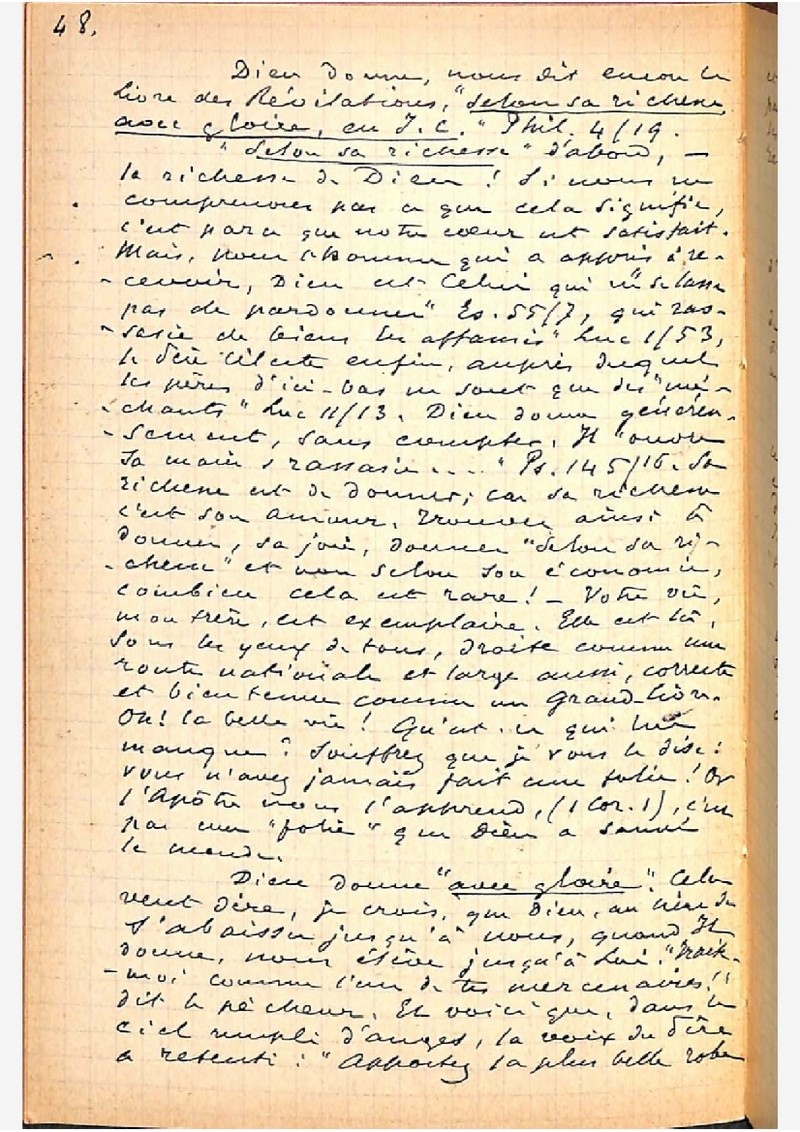 48.
Dieu donne, nous dit encore le
livre des Révélations, "selon sa richesse,
avec gloire, en J.C." Phil. 4/19.
"Selon sa richesse" d'abord, —
la richesse de Dieu ! Si nous ne
comprenons pas ce que cela signifie,
c'est parce que notre cœur est satisfait.
Mais, pour l'homme qui a appris à re-
-cevoir, Dieu est Celui qui "ne se lasse
pas de pardonner" Es. 55/7, qui "ras-
-sasie de biens les affamés" Luc 1/53,
le Père Céleste enfin, auprès duquel
les pères d'ici-bas ne sont que des "mé-
-chants" Luc 11/13. Dieu donne généreu-
-sement, sans compter. Il "ouvre
sa main & rassasie...." Ps. 145/16. Sa
richesse est de donner, car sa richesse
c'est son amour. Trouver ainsi à
donner, sa joie, donner "selon sa ri-
-chesse" et non selon son économie,
combien cela est rare ! — Votre vie,
mon frère, est exemplaire. Elle est là,
sous les yeux de tous, droite comme une
route nationale et large aussi, correcte
et bien tenue comme un Grand-Livre.
Oh! la belle vie ! Qu'est-ce qui lui
manque ? Souffrez que je vous le dise :
vous n'avez jamais fait une folie ! Or
l'Apôtre nous l'apprend, (1 Cor. 1), c'est
par une "folie" que Dieu a sauvé
le monde.
Dieu donne "avec gloire". Cela
veut dire, je crois, que Dieu, au lieu de
s'abaisser jusqu'à nous, quand Il
donne, nous élève jusqu'à Lui. "Traite-
-moi comme l'un de tes mercenaires !"
dit le pécheur. Et voici que, dans le
ciel rempli d'anges, la voix du Père
a retenti : "Apportez la plus belle robe